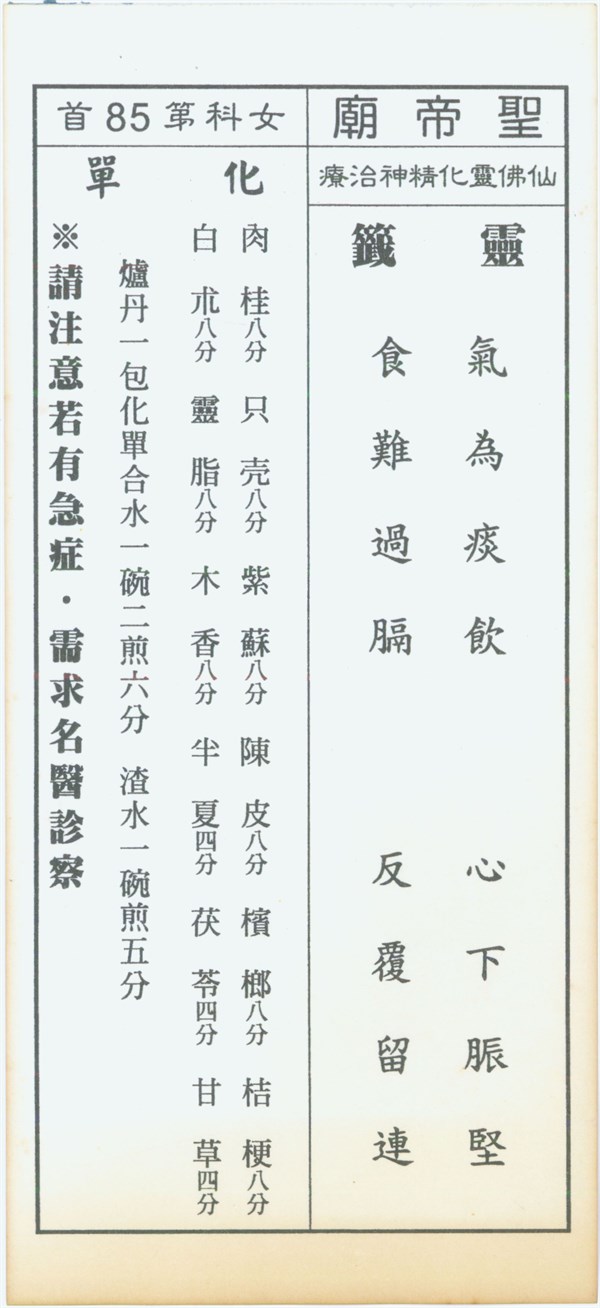 聖帝廟
仙佛靈化精神治療
靈籤
氣為痰飲 心下脹堅
食難過膈 反覆留連
女科第85首
化單
肉桂八分 只壳八分 紫蘇八分 陳皮八分 檳榔八分 桔梗八分
白朮八分 靈脂八分 木香八分 半夏四分 茯苓四分 甘草四分
爐丹一包化單合水一碗二煎六分 渣水一碗煎五分
※請注意若有急症・需求名醫診察